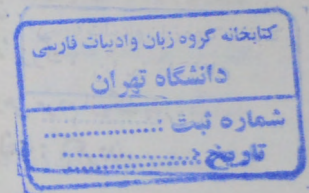 کتابخانه گروه زبان وادبیات فارسی
دانشگاه تهران
شماره ثبت :................
تاریخ :................